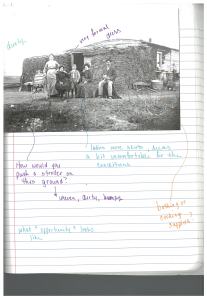 dusty
very formal
dress
ladies wore skirts, seems
a bit uncomfortable for the
conditions
How would you
push a stroller on
this ground?
uneven, dirty, bumpy
bathing or
cooking
supplies?
what "opportunity" looks
like